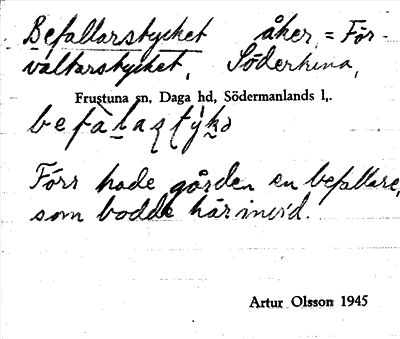 Befallarstycket åker, = För-
valtarstycket, Söderkina,
Frustuna sn, Daga hd, Södermanlands l,.
Förr hade gården en befallare,
som bodde härinvid.
Artur Olsson 1945